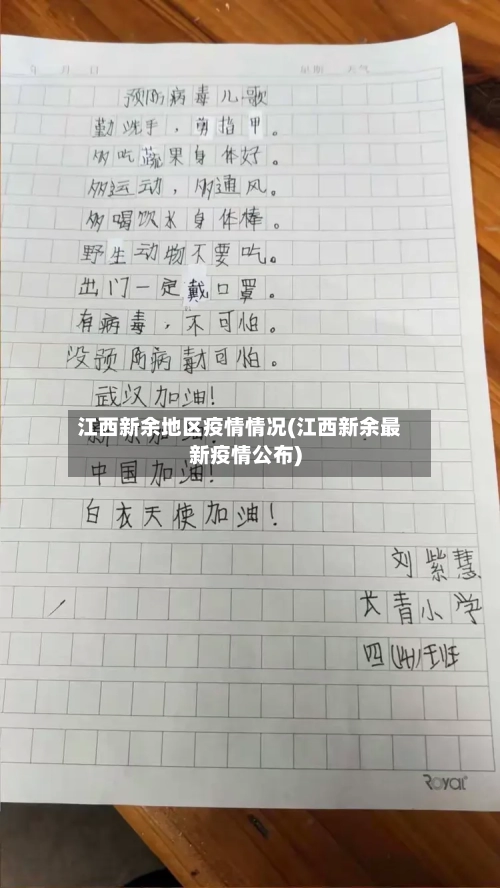 年 月 日 星期 天气
预防病毒儿歌
勤洗手，剪指甲。
多吃蔬果身体好。
多运动，多通风。
多喝饮水身体棒。
野生动物不要吃。
出门一定戴口罩。
有病毒，不可怕。
没预防病毒才可怕。
武汉加油！
江西新余地区疫情情况(江西新余最
新疫情公布)
加油！
中国加油！
白衣天使加油！
刘紫慧
长青小学
四(4)班
Royal